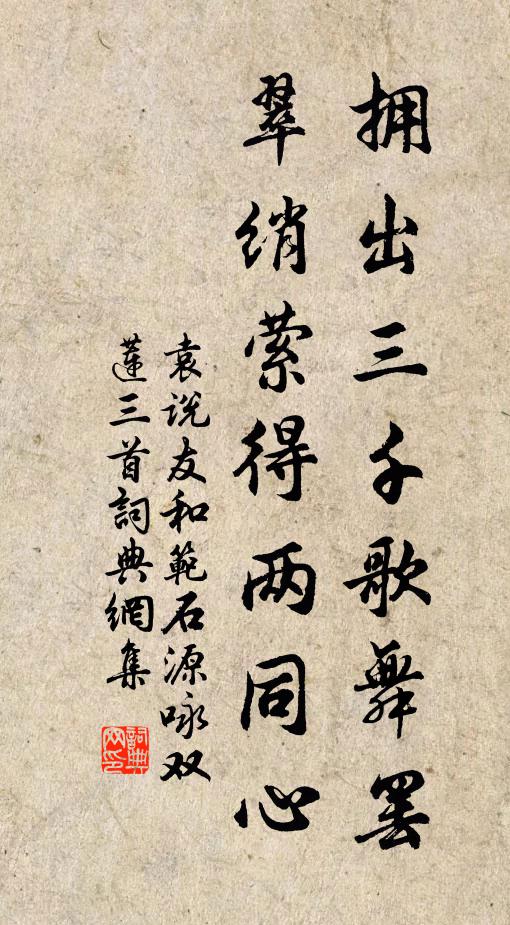 拥出三千歌舞罢
翠绡萦得两同心
袁说友和範石源咏双
莲三首詞典網集
詞典网印